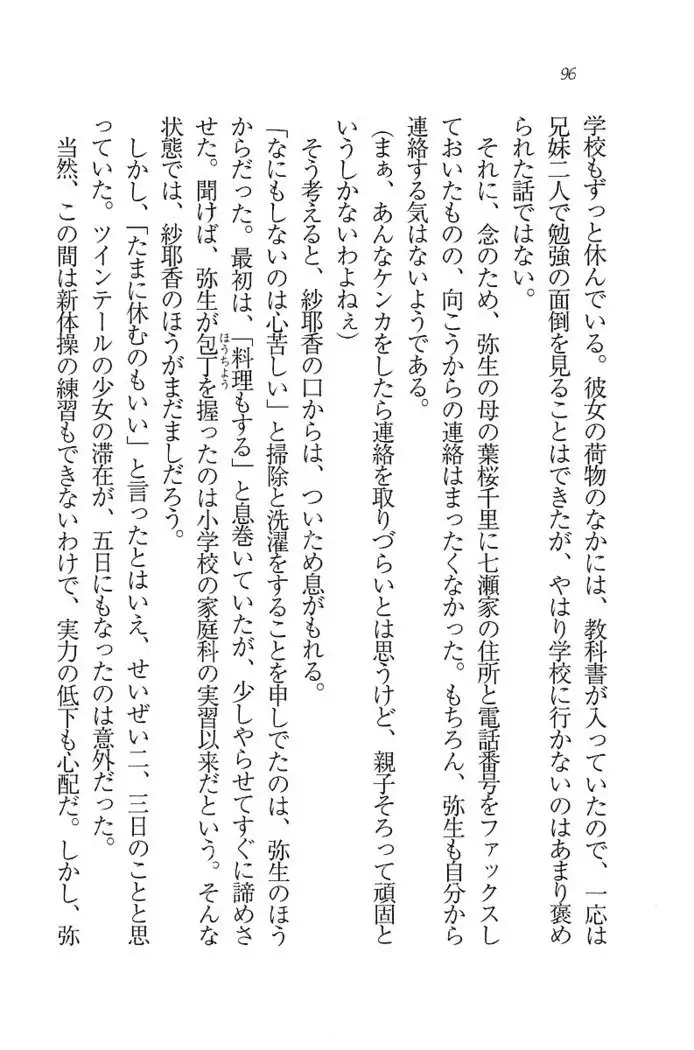 96
学校もずっと休んでいる。彼女の荷物のなかには、教科書が入っていたので、一応は
兄妹二人で勉強の面倒を見ることはできたが、やはり学校に行かないのはあまり褒め
られた話ではない。
それに、念のため、弥生の母の葉桜千里に七瀬家の住所と電話番号をファックスし
ておいたものの、向こうからの連絡はまったくなかった。もちろん、弥生も自分から
連絡する気はないようである。
(まぁ、あんなケンカをしたら連絡を取りづらいとは思うけど、親子そろって頑固と
いうしかないわよねぇ)
そう考えると、紗耶香の口からは、ついため息がもれる。
「なにもしないのは心苦しい」と掃除と洗濯をすることを申しでたのは、弥生のほう
からだった。最初は、「料理もする」と息巻いていたが、少しやらせてすぐに諦めさ
せた。聞けば、弥生が包丁を握ったのは小学校の家庭科の実習以来だという。そんな
ほうちよう
状態では、紗耶香のほうがまだましだろう。
しかし、「たまに休むのもいい」と言ったとはいえ、せいぜい二、三日のことと思
っていた。ツインテールの少女の滞在が、五日にもなったのは意外だった。
当然、この間は新体操の練習もできないわけで、実力の低下も心配だ。しかし、弥